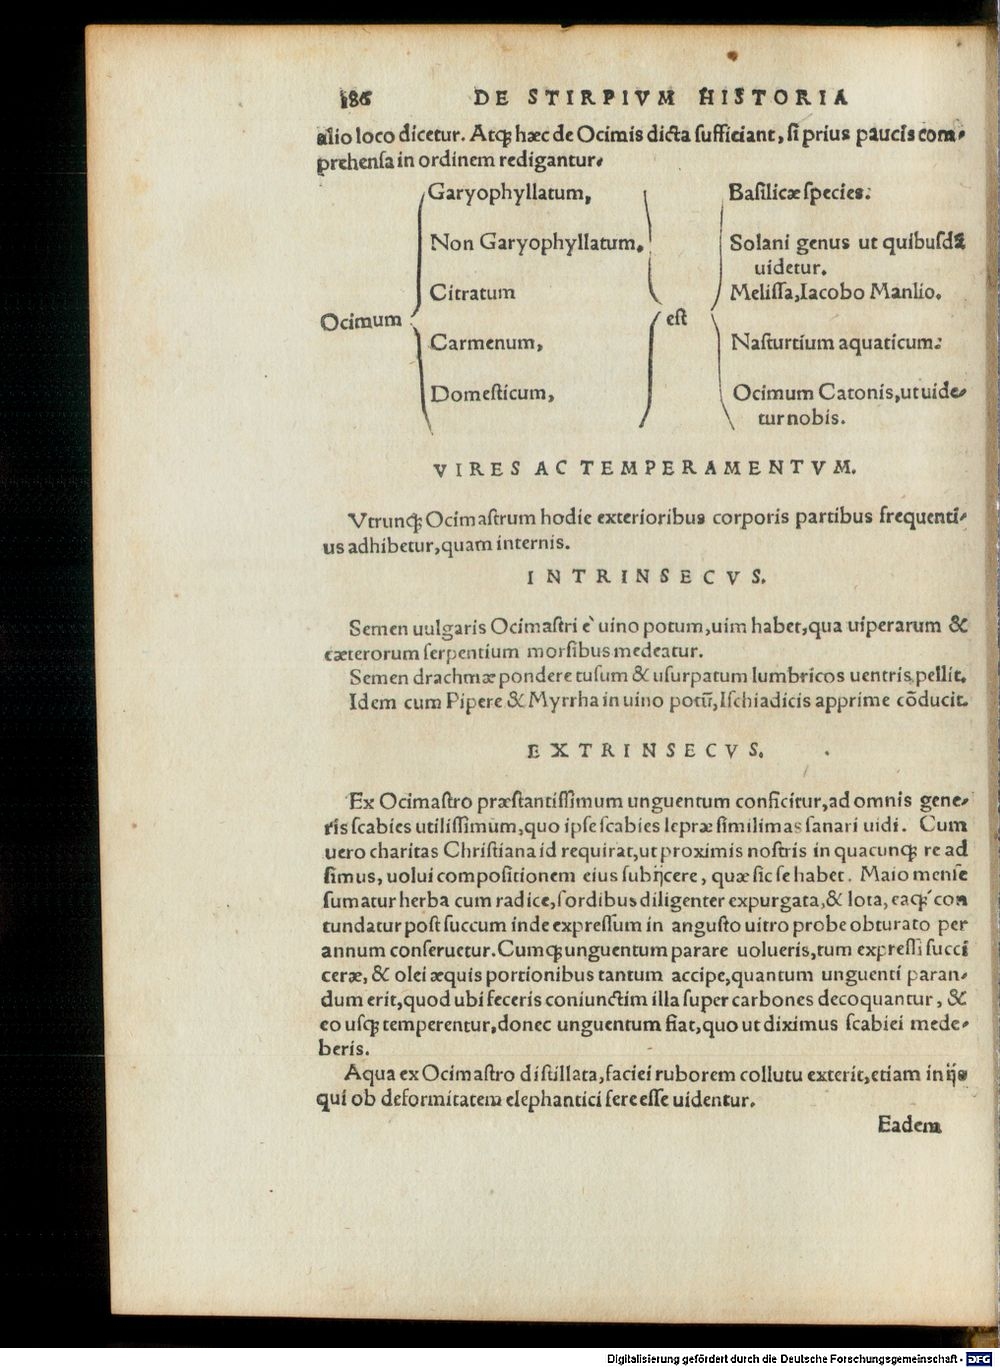 186 DE STIRPIVM HISTORIA
alio loco dicetur. Atq; hæc de Ocimis dicta sufficiant, si prius paucis com-
prehensa in ordinem redigantur.
Garyophyllatum, Basilicæ species.
Non Garyophyllatum, Solani genus ut quibusdã
uidetur.
Citratum Melissa, Iacobo Manlio.
Ocimum est
Carmenum, Nasturtium aquaticum.
Domesticum, Ocimum Catonis, ut uide-
tur nobis.
VIRES AC TEMPERAMENTVM.
Vtrunq; Ocimastrum hodie exterioribus corporis partibus frequenti-
us adhibetur, quam internis.
INTRINSECVS.
Semen uulgaris Ocimastri è uino potum, uim habet, qua uiperarum &
cæterorum serpentium morsibus medeatur.
Semen drachmæ pondere tusum & usurpatum lumbricos uentris pellit.
Idem cum Pipere & Myrrha in uino potũ, Ischiadicis apprime cõducit.
EXTRINSECVS.
Ex Ocimastro præstantissimum unguentum conficitur, ad omnis gene-
ris scabies utilissimum, quo ipse scabies lepræ simílimas sanari uidi. Cum
uero charitas Christiana id requirat, ut proximis nostris in quacunq; re ad
simus, uolui compositionem eius subijcere, quæ sic se habet. Maio mense
sumatur herba cum radice, sordibus diligenter expurgata, & lota, eaq́; con
tundatur post succum inde expressum in angusto uitro probe obturato per
annum conseruetur. Cumq; unguentum parare uolueris, tum expressi succi
ceræ, & olei æquis portionibus tantum accipe, quantum unguenti paran-
dum erit, quod ubi feceris coniunctim illa super carbones decoquantur, &
eo usq; temperentur, donec unguentum fiat, quo ut diximus scabiei mede-
beris.
Aqua ex Ocimastro distillata, faciei ruborem collutu exterit, etiam in ijs
qui ob deformitatem elephantici fere esse uidentur.
Eadem
Digitalisierung gefördert durch die Deutsche Forschungsgemeinschaft - DFG